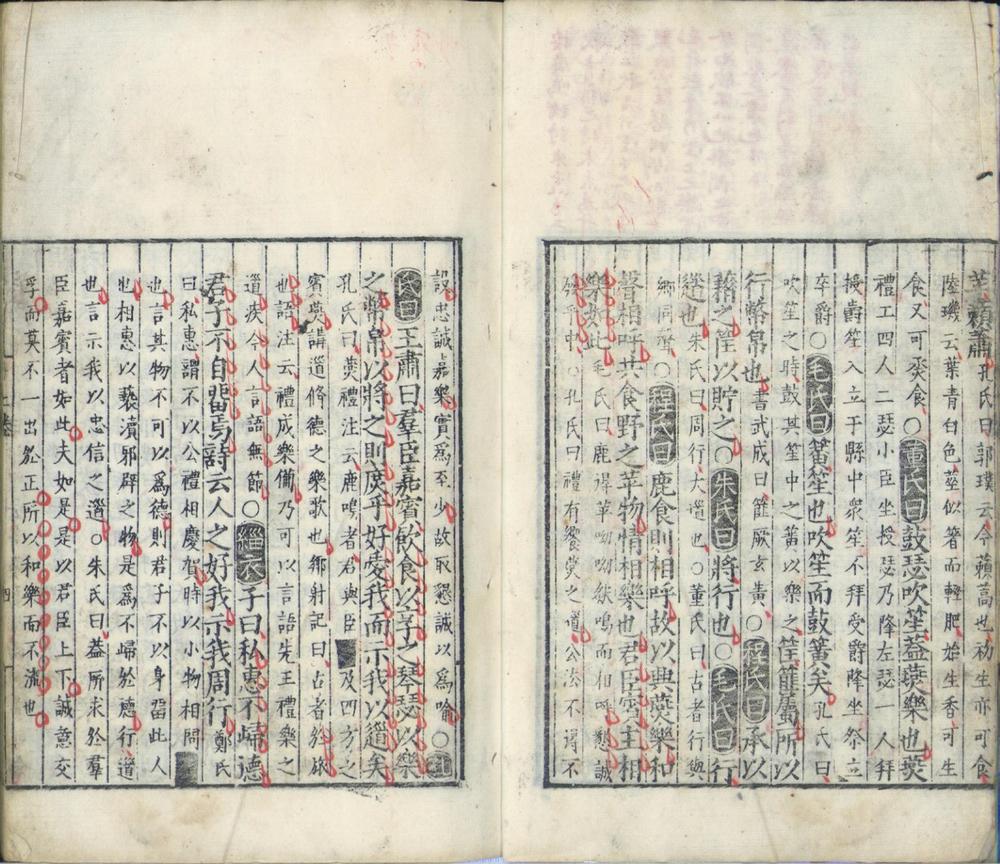 苹藾蕭孔氏曰郭璞云今藾蒿也初生亦可食
陸璣云葉青白色莖似箸而輕肥始生香可生
食又可烝食○董氏曰鼓瑟吹笙葢燕樂也燕
禮工四人二瑟小臣坐授瑟乃降左瑟一人拜
授爵笙入立于縣中衆笙不拜受爵降坐祭立
卒爵○毛氏曰簧笙也吹笙而鼓簧矣孔氏曰
吹笙之時鼓其笙中之簧以樂之筐篚屬所以
行幣帛也書武成曰篚厥玄黄○程氏曰承以
藉之筐以貯之○朱氏曰將行也○毛氏曰行
道也朱氏曰周行大道也○董氏曰古者行與
鄉同聲○程氏曰鹿食則相呼故以興燕樂和
聲相呼共食野之苹物情相樂也君臣賓主相
樂如此毛氏曰鹿得苹呦呦然鳴而相呼懇誠
發乎中○孔氏曰禮有饗燕之道公法不得不
設忠誠嘉樂實爲至少故取懇誠以爲喻○孔
氏曰王肅曰羣臣嘉賓飲食以享之琴瑟以樂
之幣帛以將之則庶乎好愛我而示我以道矣
孔氏曰燕禮注云鹿鳴者君與臣及四方之
賓燕講道脩德之樂歌也鄉射記曰古者於旅
也語注云禮成樂備乃可以言語先王禮樂之
道疾今人言語無節○緇衣子曰私惠不歸德
君子不自留焉詩云人之好我示我周行鄭氏
曰私惠謂不以公禮相慶賀時以小物相問
也言其物不可以爲德則君子不以身留此人
也相惠以褻瀆邪辟之物是爲不歸於德行道
也言示我以忠信之道○朱氏曰葢所求於羣
臣嘉賓者如此夫如是是以君臣上下誠意交
孚而莫不一出於正所以和樂而不流也